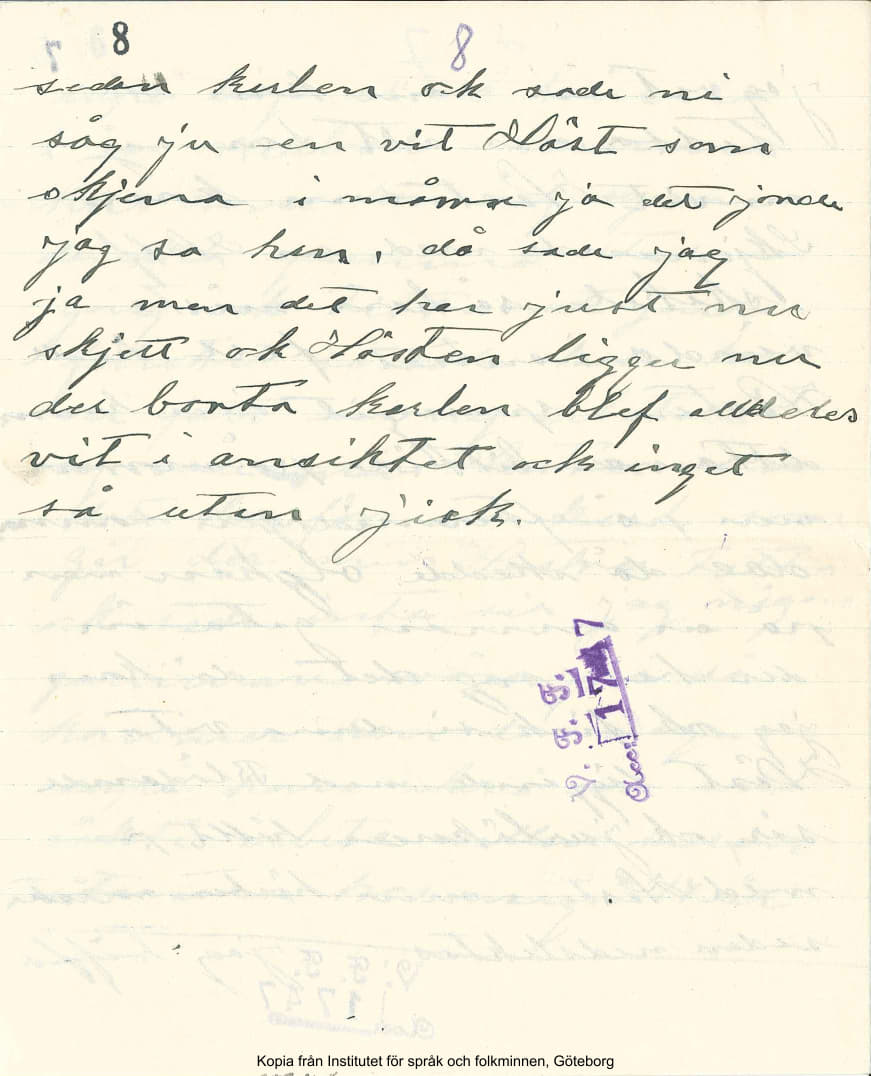 8 8
sedan kerlen ock sade ni
såg ju en vit Häst som
skjena i mårns ja det jorde
jag sa han, då sade jag
ja men det har just nu
skjett ock Hästen ligger nu
der borta kerlen blef alldeles
vit i ansiktet ock inget
så utan jick.
I. F. F.
Acc. 1747
Kopia från Institutet för språk och folkminnen, Göteborg